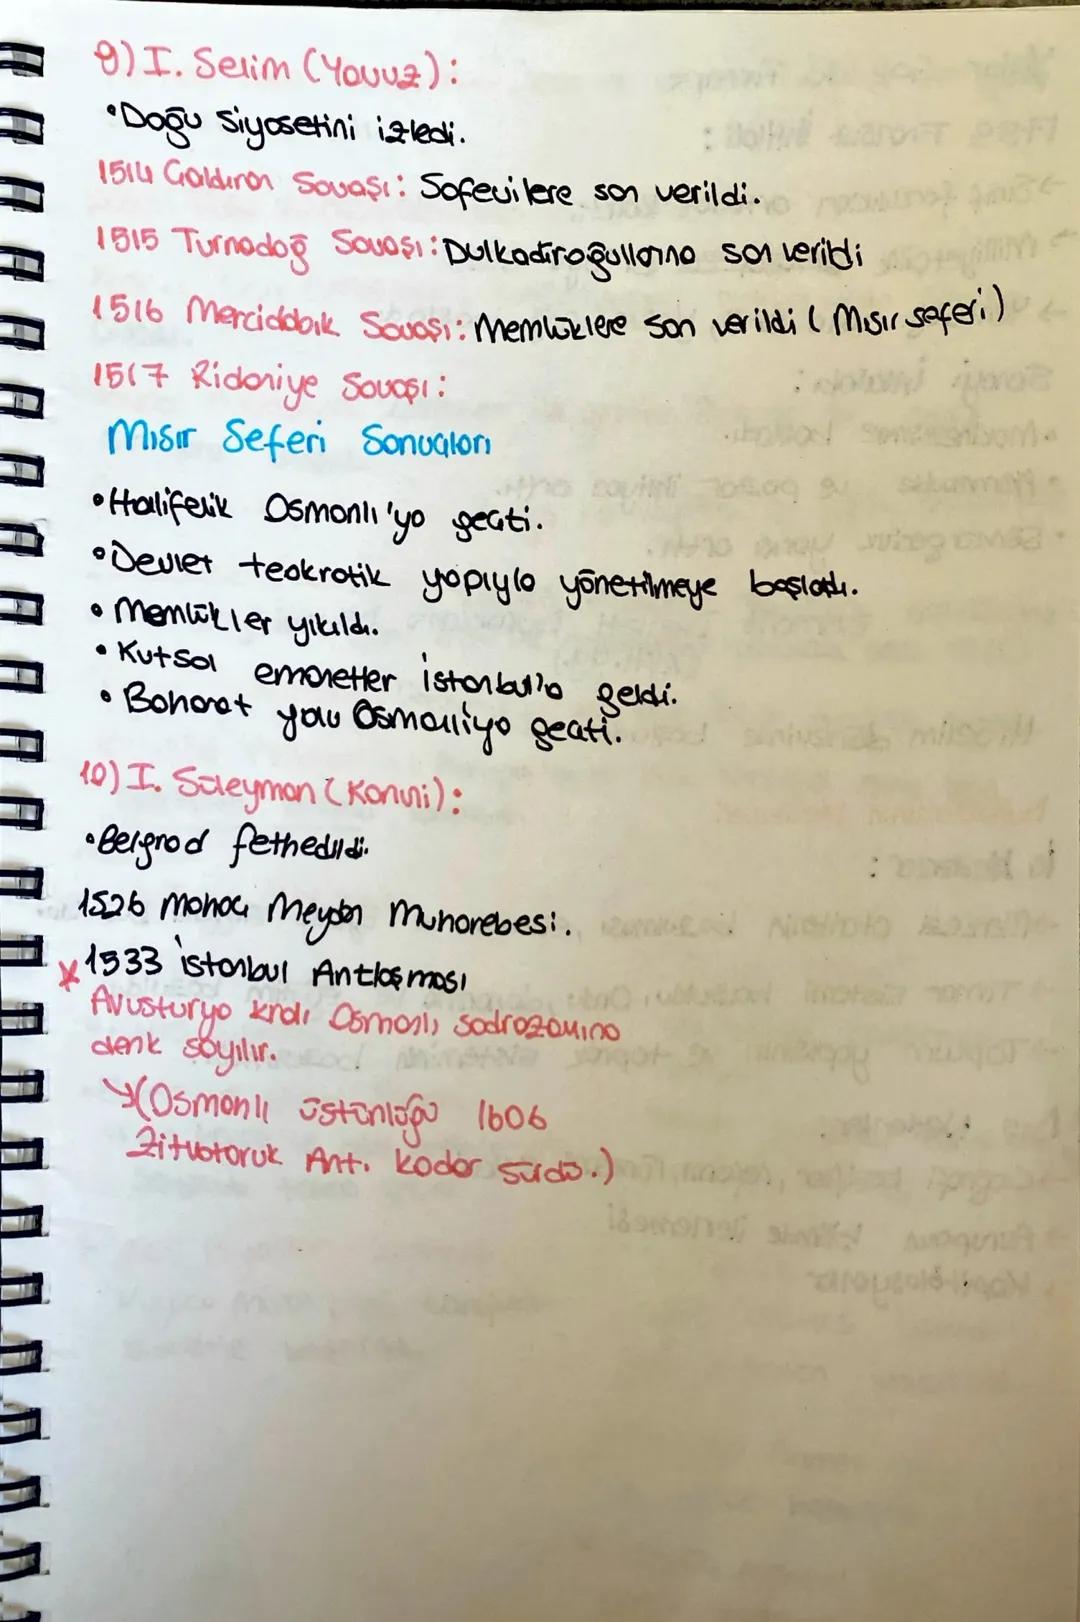 9) I. Selim (Yavuz):
• Doğu Siyasetini izledi.
1514 Çaldıran Savaşı: Safevilere son verildi.
1515 Turnadağ Savaşı: Dulkadiroğullarına son verildi
1516 Mercidabık Savaşı: Memlüklere son verildi (Mısır seferi)
1517 Ridaniye Savaşı:
Mısır Seferi Sonuçları
• Halifelik Osmanlı'ya geçti.
• Devlet teokratik yapıyla yönetilmeye başladı.
• Memlükler yıkıldı.
• Kutsal emanetler İstanbul'a geldi.
• Baharat yolu Osmanlıya geçti.
10) I. Süleyman (Kanuni):
• Belgrad fethedildi.
1526 Mohaç Meydan Muharebesi.
x 1533 istanbul Antlaşması
Avusturya kralı Osmanlı sadrazamına
denk sayılır.
↳ (Osmanlı üstünlüğü 1606
Zitvatoruk Ant. kadar sürdü.)